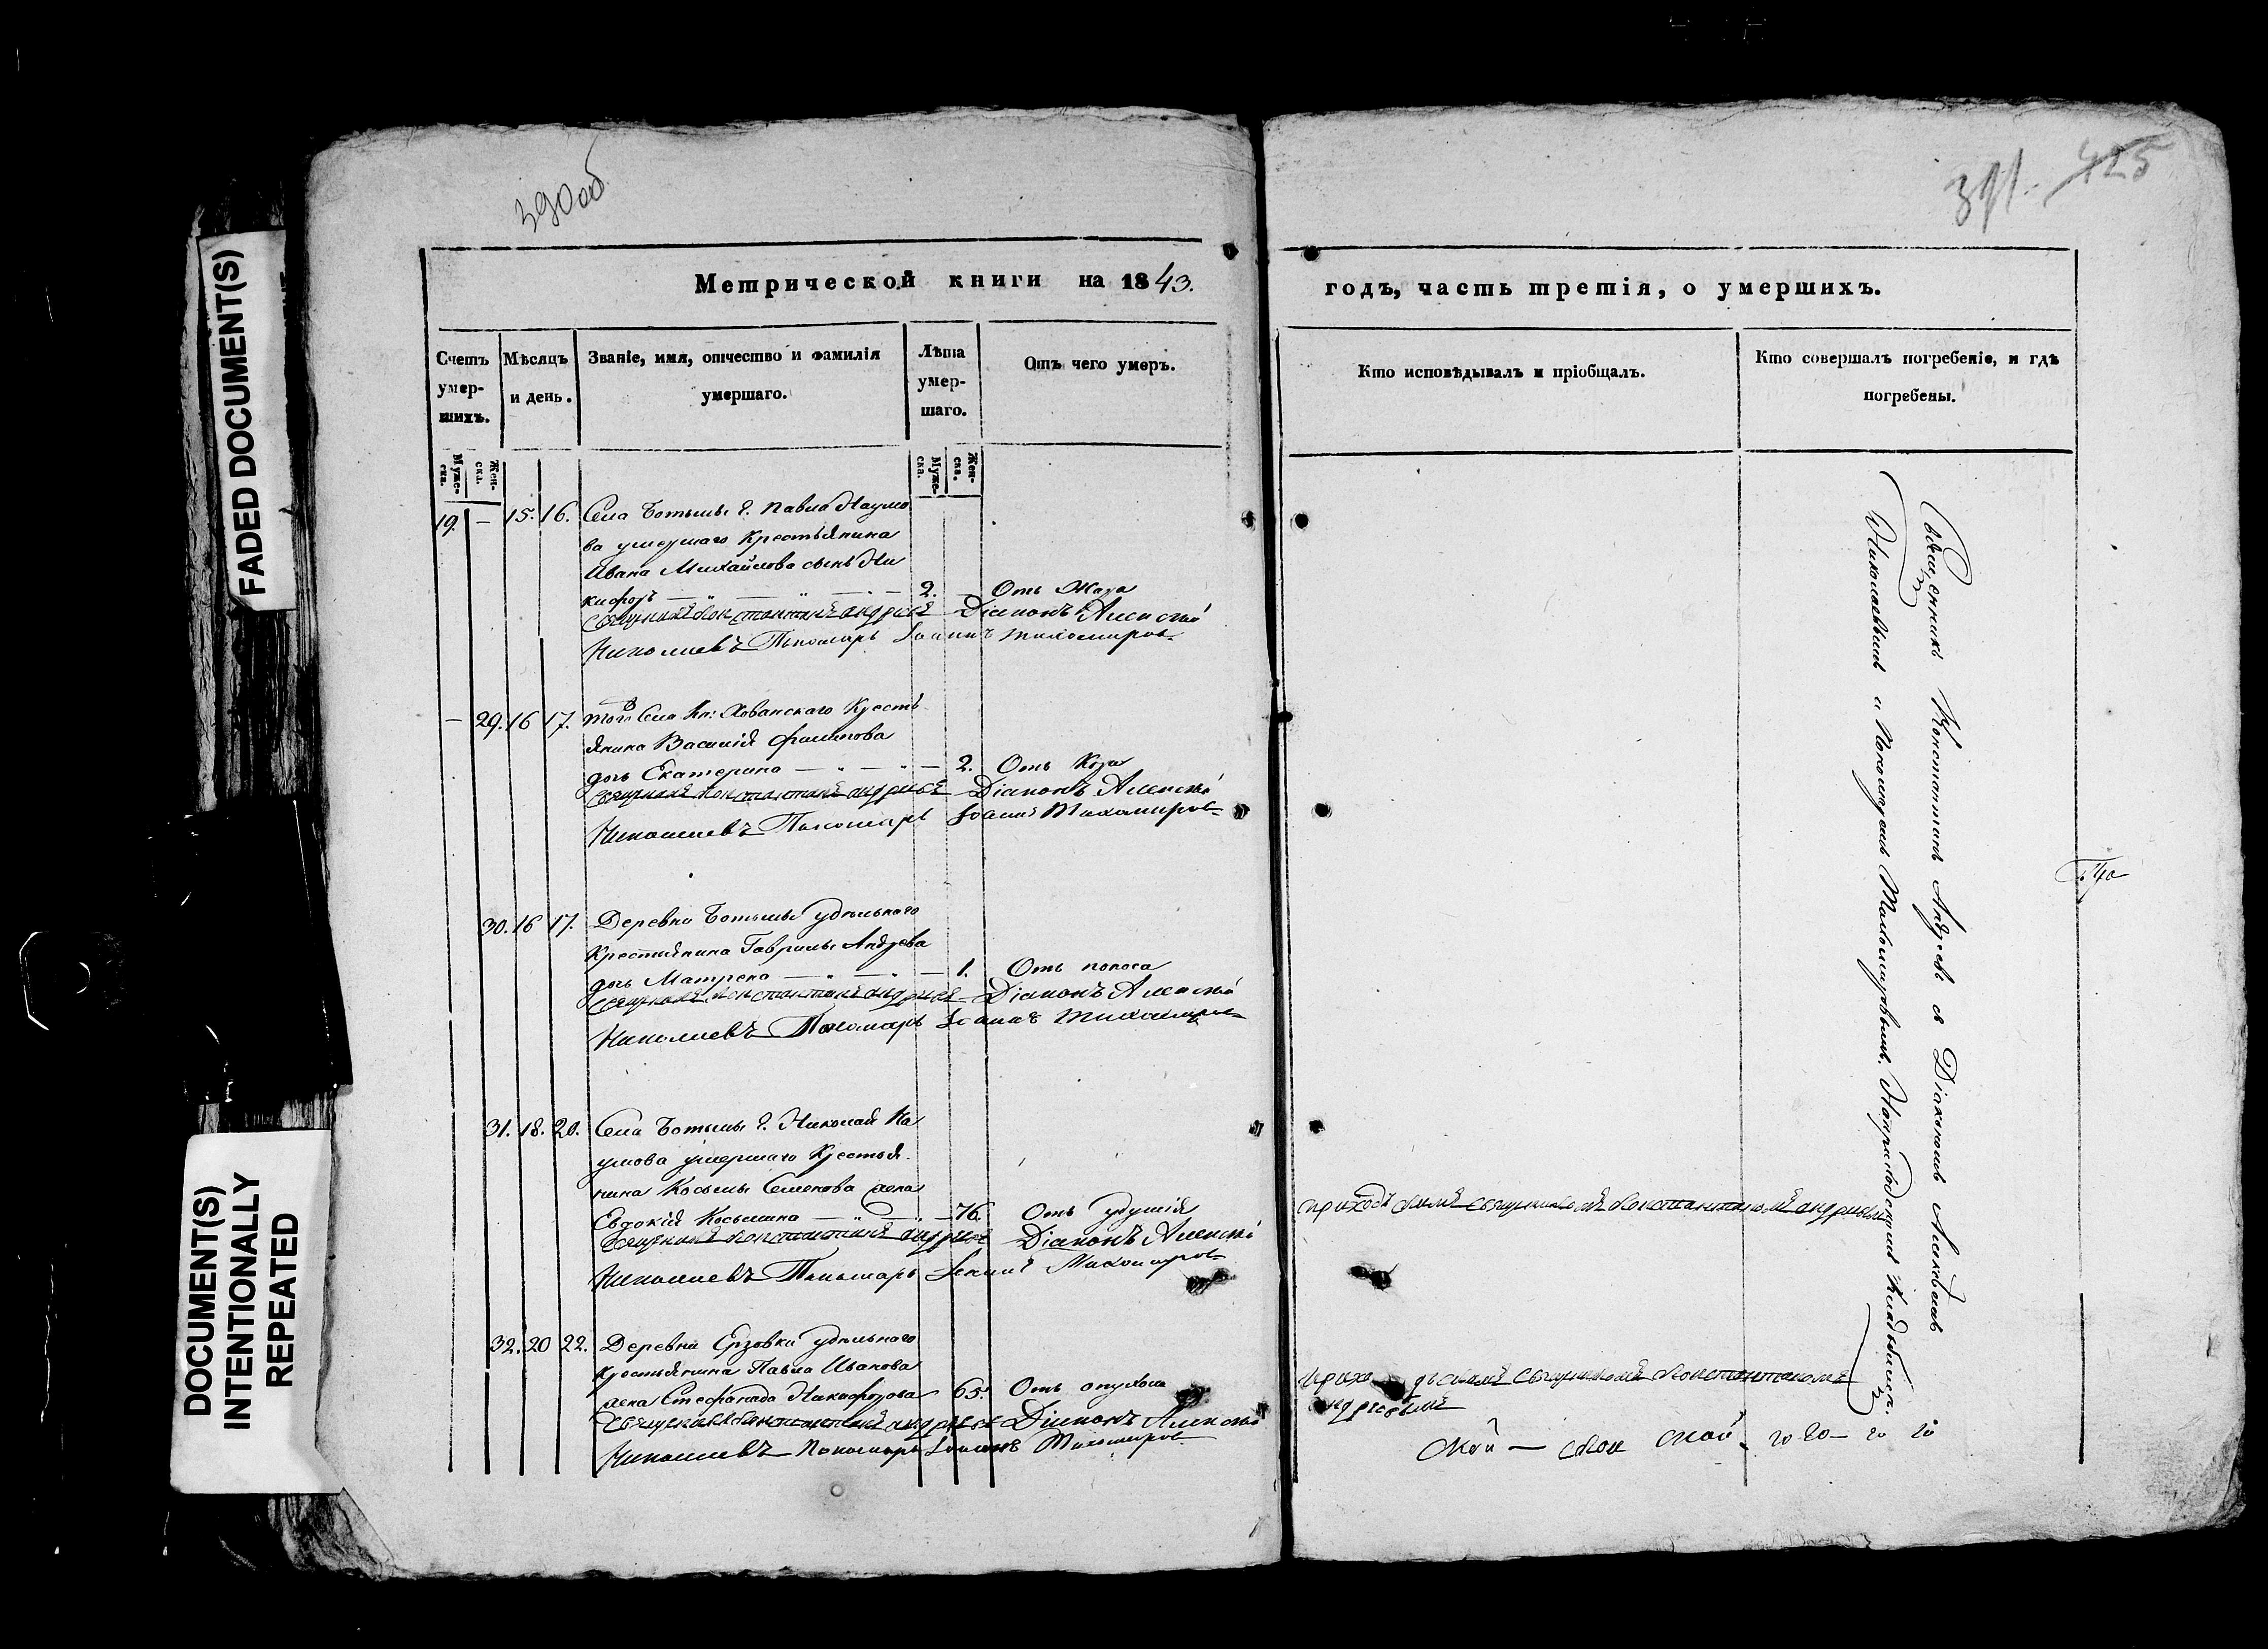 390 об
391. 425
FADED DOCUMENT(S)
DOCUMENT(S)
INTENTIONALLY
REPEATED
Метрической книги на 1843.
годъ, часть третія, о умершихъ.
Счетъ умер-шихъ.
Мѣсяцъ и день.
Званіе, имя, отчество и фамилія умершаго.
Лѣта умер-шаго.
Отъ чего умеръ.
Кто исповѣдывалъ и пріобщалъ.
Кто совершалъ погребеніе, и гдѣ погребены.
Муже-ска.
Жен-ска.
Муже-ска.
Жен-ска.
19. — 15. 16. Села Ботьмы г. Павла Наумо
ва умершаго Крестьянина
Ивана Михайлова сынъ Ни
кифоръ — 2. Отъ
Священникъ Константинъ Андреевъ Діаконъ Алексѣй
Николаевъ Пономарь Іоаннъ Тихомировъ
— 29. 16 17. Того Села Кн: Хованскаго Кресть
янина Василія Филипова
дочь Екатерина — 2. Отъ
Священникъ Константинъ Андреевъ Діаконъ Алексѣй
Николаевъ Пономарь Іоаннъ Тихомировъ
30. 16 17. Деревни Ботьмы удѣльнаго
Крестьянина Гаврилы Андреева
дочь Матрена — 1. Отъ поноса
Священникъ Константинъ Андреевъ Діаконъ Алексѣй
Николаевъ Пономарь Іоаннъ Тихомировъ
31. 18. 20. Села Ботьмы г. Николая На
умова умершаго Крестья
нина Косьмы Семенова жена
Евдокія Косьмина — 76. Отъ удушія
Священникъ Константинъ Андреевъ Діаконъ Алексѣй
Николаевъ Пономарь Іоаннъ Тихомировъ
приходскимъ священникомъ Константиномъ Андреевымъ
32. 20 22. Деревни Ерзовки удѣльнаго
Крестьянина Павла Иванова
жена Стефанида Никифорова 65. Отъ опухоли
Священникъ Константинъ Андреевъ Діаконъ Алексѣй
Николаевъ Пономарь Іоаннъ Тихомировъ
приходскимъ священникомъ Константиномъ
Андреевымъ
Священникъ Константинъ Андреевъ съ Діакономъ Алексѣемъ
Николаевымъ и Пономаремъ Тихомировымъ. На приходскомъ Кладбищѣ.